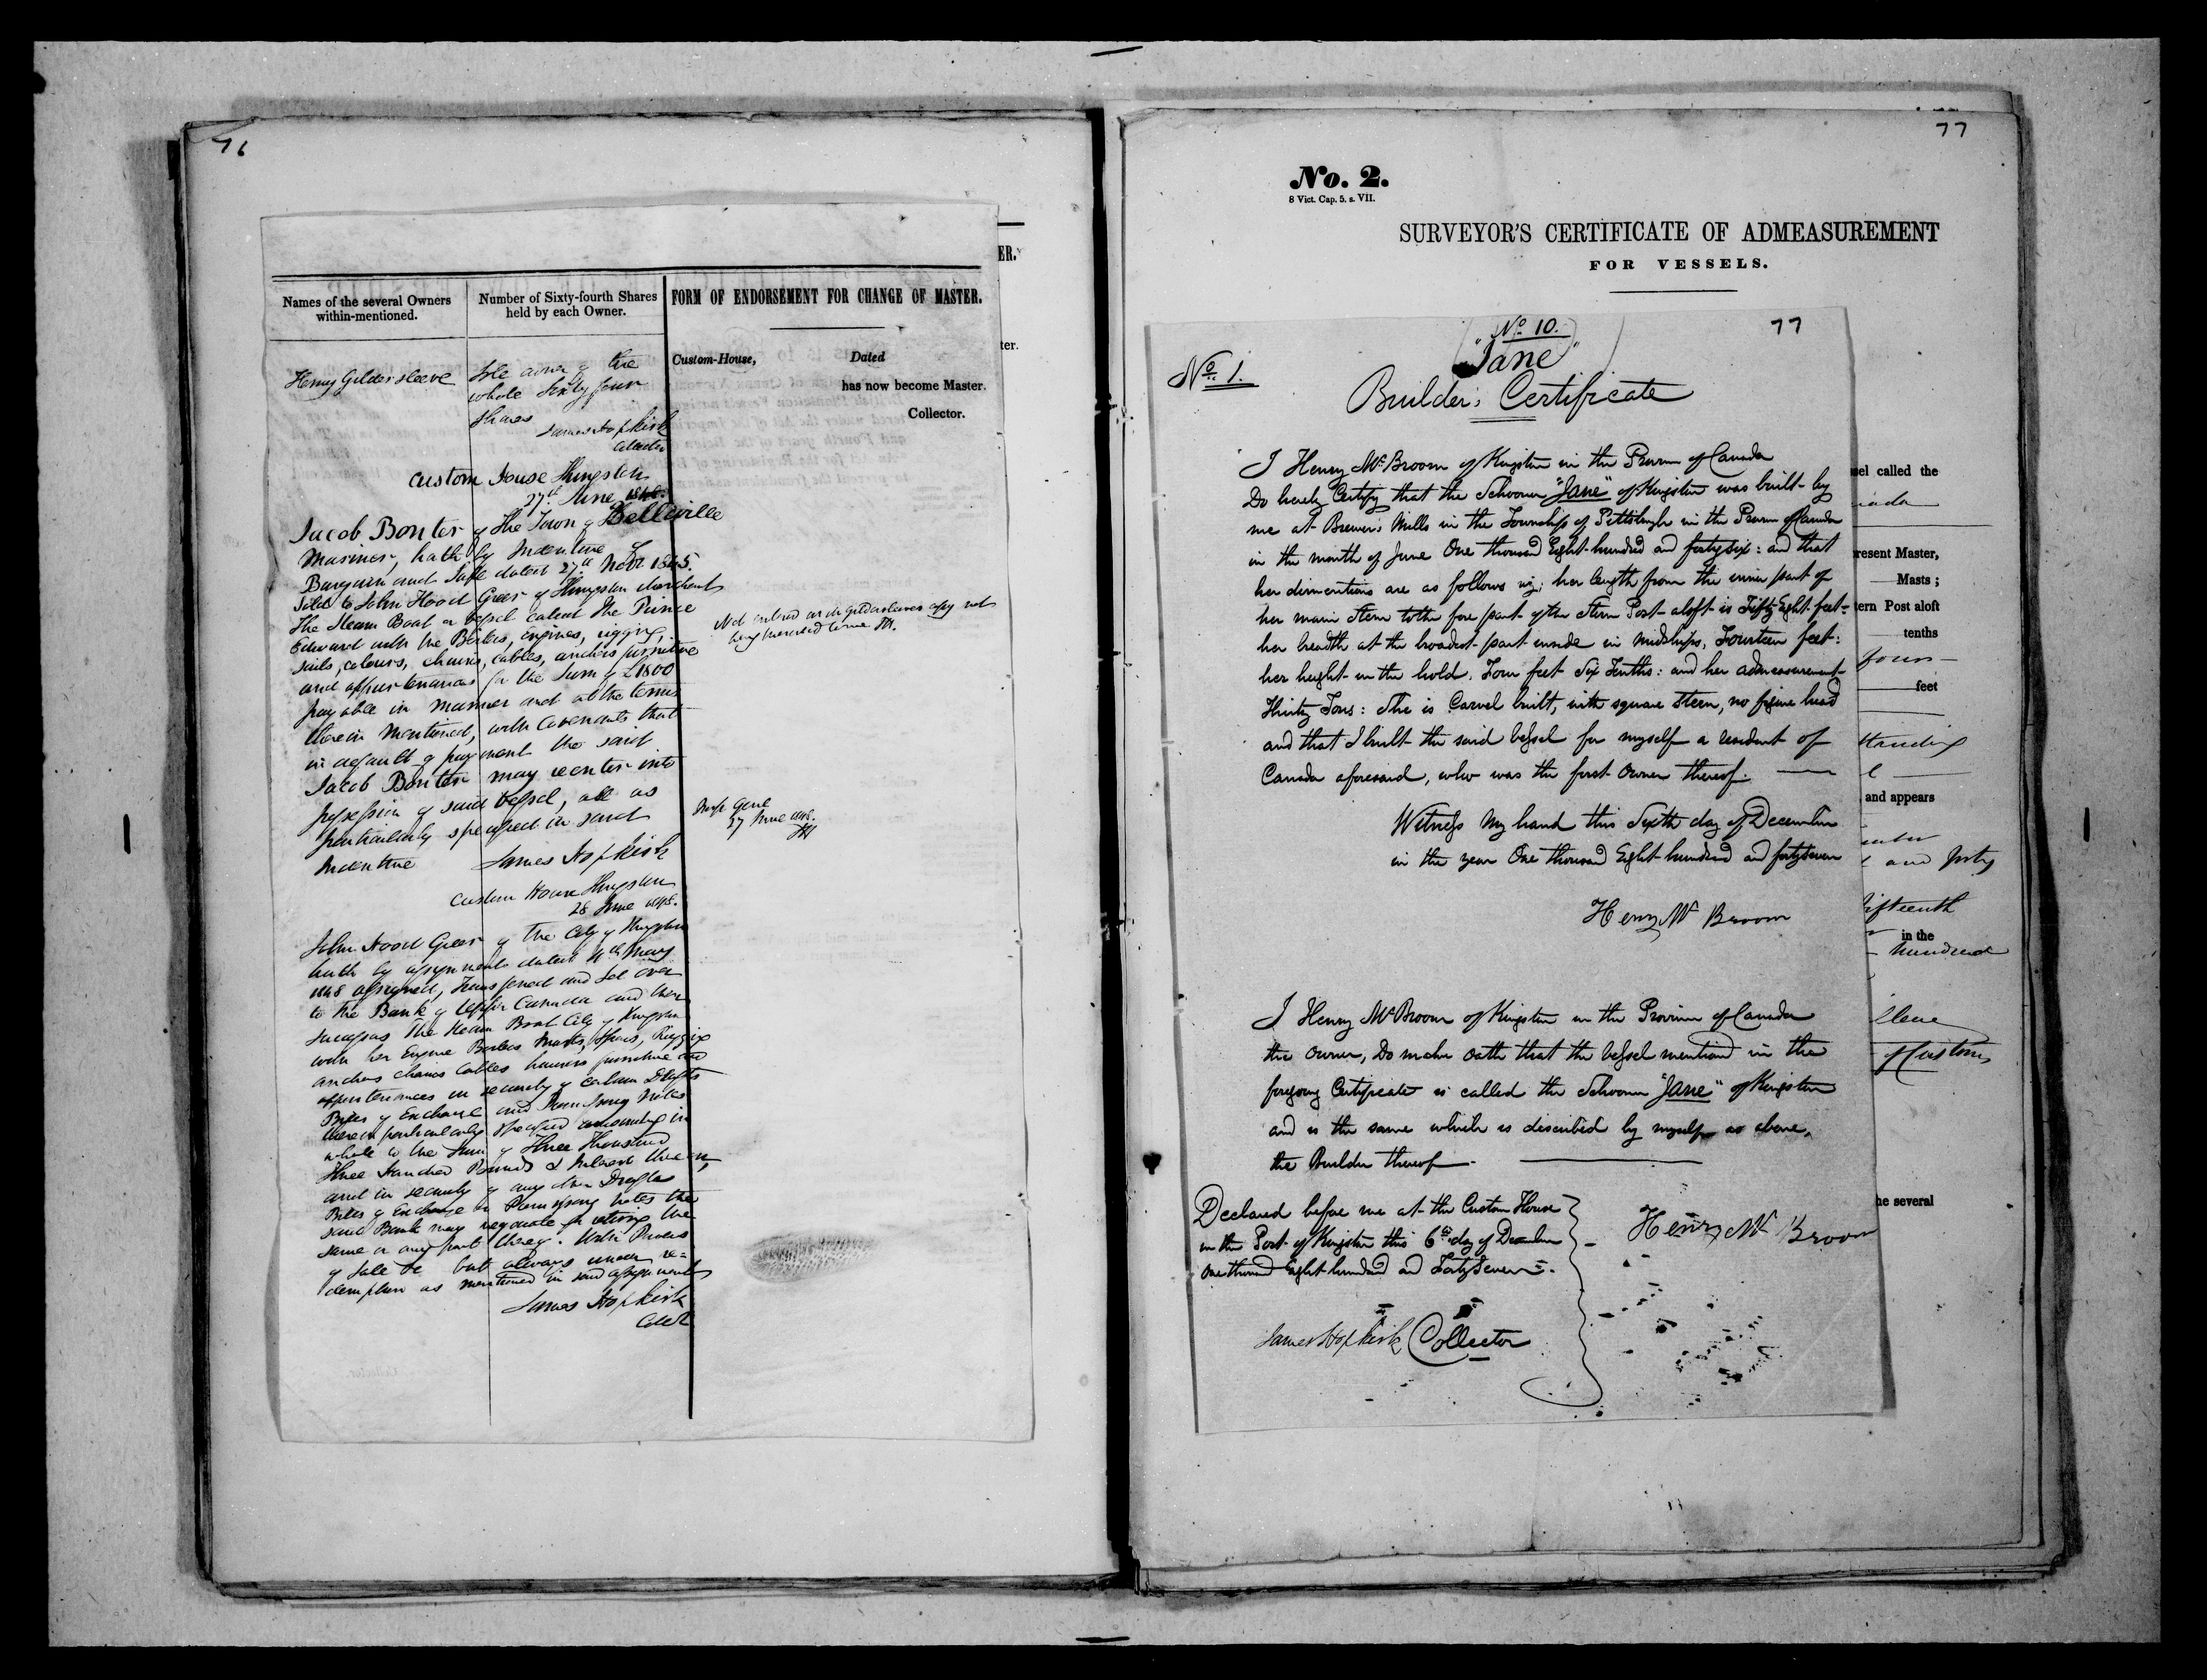 76
ER.
Names of the several Owners
within-mentioned.
Number of Sixty-fourth Shares
held by each Owner.
FORM OF ENDORSEMENT FOR CHANGE OF MASTER.
ter.
Custom-House, Dated
has now become Master.
Collector.
Henry Gildersleeve
Sole owner of the
whole Sixty four
Shares
James Hopkirk
Collector
Custom House Kingston
27th June 1848.
Jacob Bonter of the Town of Belleville
Mariner, hath by Indenture of
Bargain and Sale dated 27th Novr 1845.
Sold to John Hood Greer of Kingston Merchant
the Steam Boat or Vessel called the Prince
Edward with the Boilers, Engines, rigging,
sails, colours, chains, cables, anchors furniture
and appurtenances for the Sum of £1800
payable in manner and at the terms
therein mentioned, with Covenants that
in default of payment the said
Jacob Bonter may reenter into
possession of said Vessel, all as
particularly specified in said
Indenture James Hopkirk
Not entered on Gildersleeves copy not
being presented to me JH.
27 June 1848.
JH
Custom House Kingston
28 June 1848.
John Hood Greer of the City of Kingston
hath by assignment dated 4th May
1848 assigned, Transferred and Set over
to the Bank of Upper Canada and their
successors the Steam Boat City of Kingston
with her Engine Boilers Masts, Spars, Rigging
anchors chains Cables furniture and
appurtenances in security of certain Drafts
Bills of Exchange and Promissory Notes
therein particularly specified amounting in
whole to the Sum of Three Thousand
Three Hundred Pounds & Interest thereon,
and in security of any other Drafts
Bills of Exchange or Promissory notes the
said Bank may negotiate for retiring the
same or any part thereof. With Power
of Sale &c but always under re=
demption as mentioned in said assignment
James Hopkirk
Collr
77
No. 2.
8 Vict. Cap. 5. s. VII.
SURVEYOR'S CERTIFICATE OF ADMEASUREMENT
FOR VESSELS.
No 10.
77
"Jane"
No 1.
Builder's Certificate
I Henry McBroom of Kingston in the Province of Canada
Do hereby Certify that the Schooner "Jane" of Kingston was built by
me at Brewer's Mills in the Township of Pittsburgh in the Province of Canada
in the month of June One thousand Eight hundred and forty six: and that
her dimentions are as follows viz; her length from the inner part of
her main Stem to the fore part of the Stern Post aloft is Fifty Eight feet-
her breadth at the broadest part inside in Midships, Fourteen feet:
her height in the hold, Four feet Six Tenths: and her admeasurement
Thirty Tons: She is Carvel built, with square Stern, no figure head
and that I built the said vessel for myself a resident of
Canada aforesaid, who was the first Owner thereof.
Witness my hand this Sixth day of December
in the year One thousand Eight hundred and fortyseven
Henry Mc Broom
I Henry McBroom of Kingston in the Province of Canada
the owner, Do make oath that the vessel mentioned in the
foregoing Certificate is called the Schooner "Jane" of Kingston
and is the same which is described by myself as above,
the Builder thereof.
Declared before me at the Custom House
in the Port of Kingston this 6th day of December
One thousand Eight hundred and Forty Seven.
Henry Mc Broom
James Hopkirk Collector
sel called the
nada
resent Master,
Masts;
tern Post aloft
tenths
four
feet
standing
and appears
and forty
fifteenth
in the
hundred
of Customs
he several